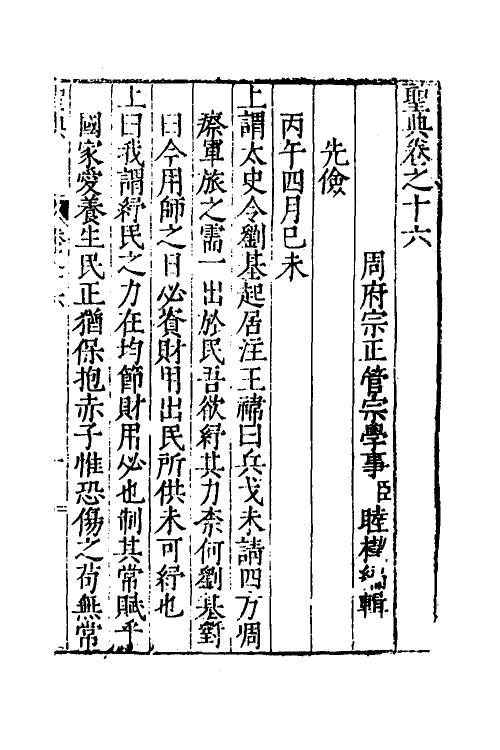 聖典卷之十六
周府宗正管宗學事臣睦㮮編輯
先儉
丙午四月己未
上謂太史令劉基起居注王禕曰兵戈未請四方凋
瘵軍旅之需一出於民吾欲紓其力柰何劉基對
曰今用師之日必資財用出民所供未可紓也
上曰我謂紓民之力在均節財用必也制其常賦乎
國家愛養生民正猶保抱赤子惟恐傷之苟無常
聖典
卷十六
一